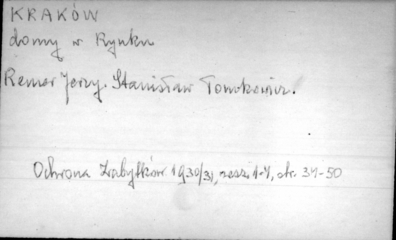 KRAKÓW
domy w Rynku
Remer Jerzy. Stanisław Tomkowicz.
Ochrona Zabytków 1930/31, zesz. 1-4, str. 34-50